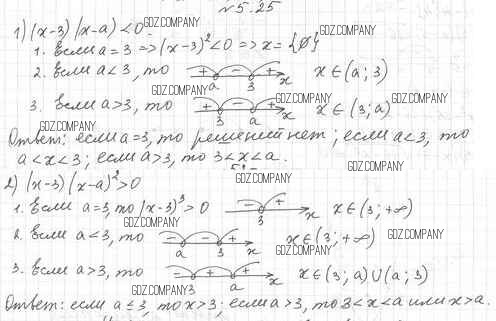 №5.25
1) (x-3)(x-a)<0. GDZ.COMPANY
1. Если a=3 => (x-3)²<0 => x={∅} GDZ.COMPANY
GDZ.COMPANY
2. Если a<3, то + - + a 3 x x∈(a; 3)
GDZ.COMPANY
3. Если a>3, то + - + 3 a x x∈(3; a) GDZ.COMPANY
GDZ.COMPANY GDZ.COMPANY
Ответ: если a=3, то решений нет; если a<3, то
a<x<3; если a>3, то 3<x<a.
GDZ.COMPANY
2) (x-3)(x-a)²>0 GDZ.COMPANY
1. Если a=3, то (x-3)³>0 - + 3 x x∈(3; +∞)
GDZ.COMPANY GDZ.COMPANY
2. Если a<3, то - - + a 3 x x∈(3; +∞) GDZ.COMPANY
GDZ.COMPANY
3. Если a>3, то - + + 3 a x x∈(3; a)∪(a; 3)
GDZ.COMPANY
Ответ: если a≤3, то x>3; если a>3, то 3<x<a или x>a.